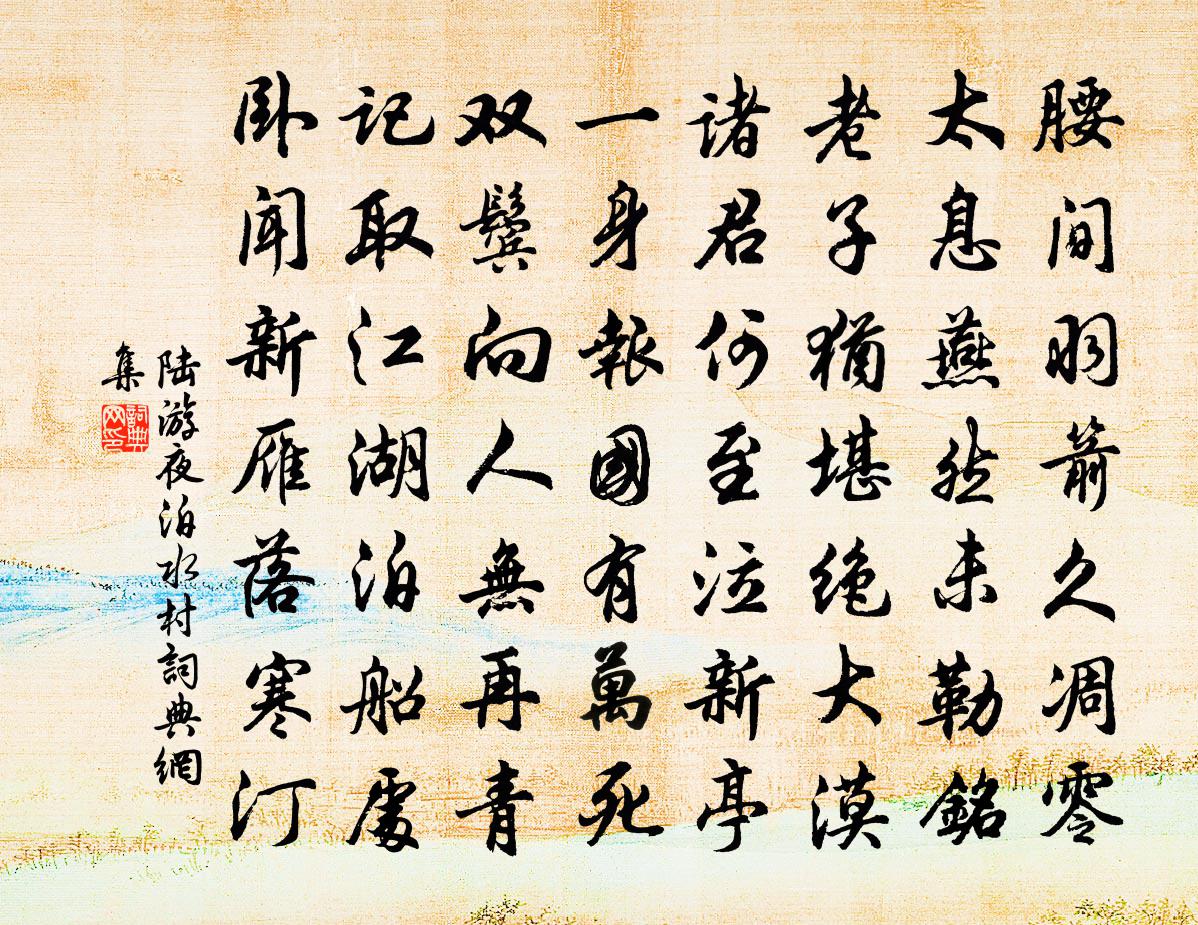 腰间羽箭久凋零
太息燕然未勒銘
老子猶堪绝大漠
诸君何至泣新亭
一身報國有萬死
双鬢向人無再青
记取江湖泊船處
卧闻新雁落寒汀
陆游夜泊水村詞典網
集
詞典
网印